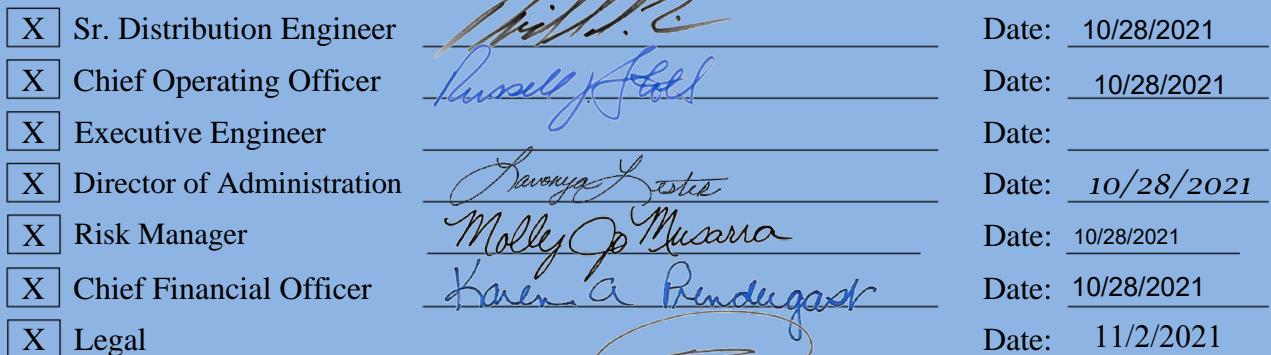 X Sr. Distribution Engineer Date: 10/28/2021
X Chief Operating Officer Russell J. Date: 10/28/2021
X Executive Engineer Date:
X Director of Administration Lavonya Lester Date: 10/28/2021
X Risk Manager Molly Jo Musarra Date: 10/28/2021
X Chief Financial Officer Karen A Prendergast Date: 10/28/2021
X Legal Date: 11/2/2021